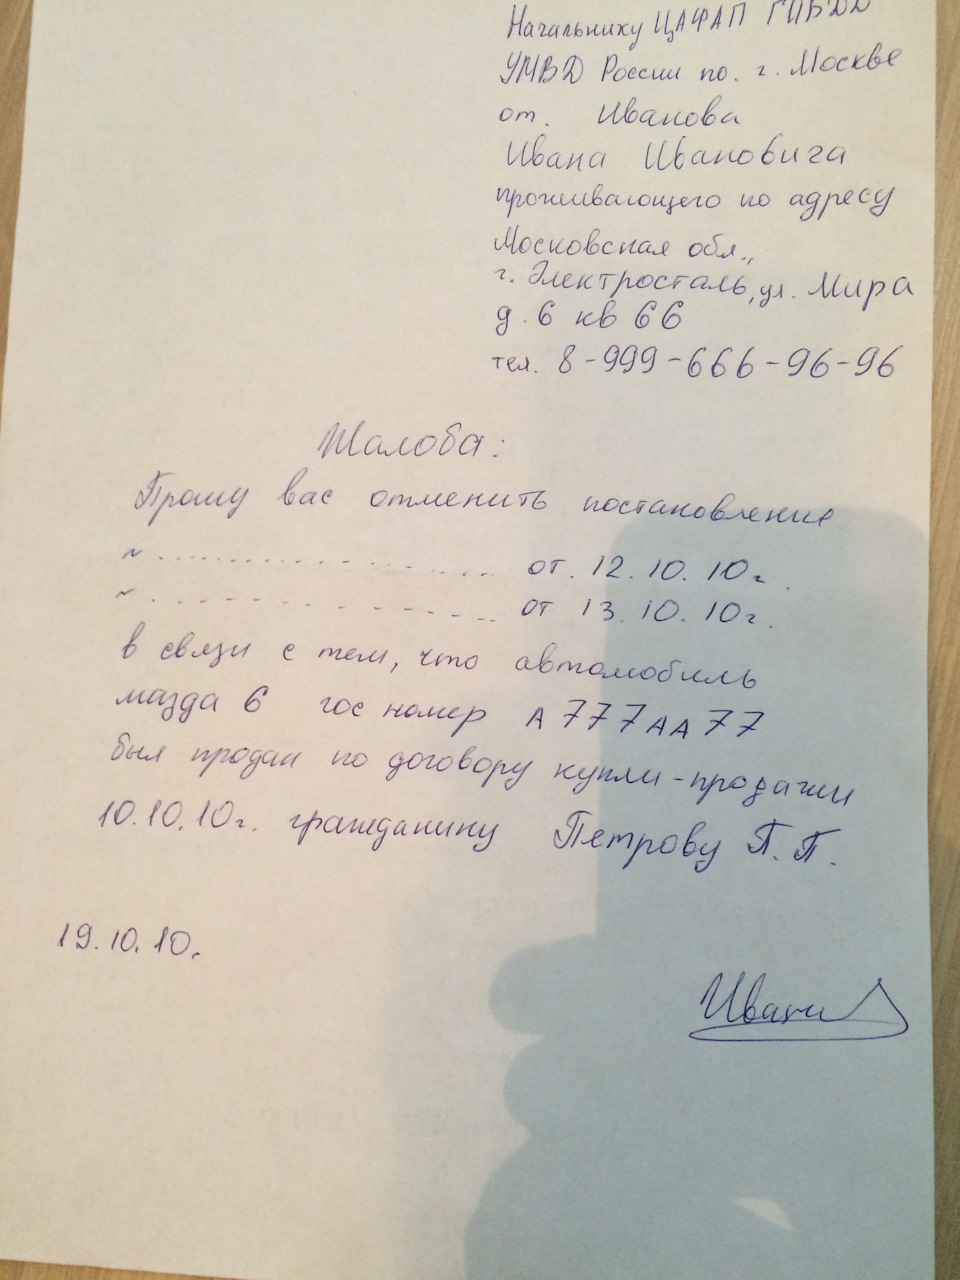 Начальнику ЦАФАП ГИБДД
УМВД России по. г. Москве
от. Иванова
Ивана Ивановича
проживающего по адресу
Московская обл.,
г. Электросталь, ул. Мира
д. 6 кв 66
тел. 8-999-666-96-96
Жалоба:
Прошу вас отменить постановление
N .................... от. 12.10.10г.
N .................... от 13.10.10г.
в связи с тем, что автомобиль
мазда 6 гос номер А777АА77
был продан по договору купли-продажи
10.10.10г. гражданину Петрову П.П.
19.10.10.
Иванов